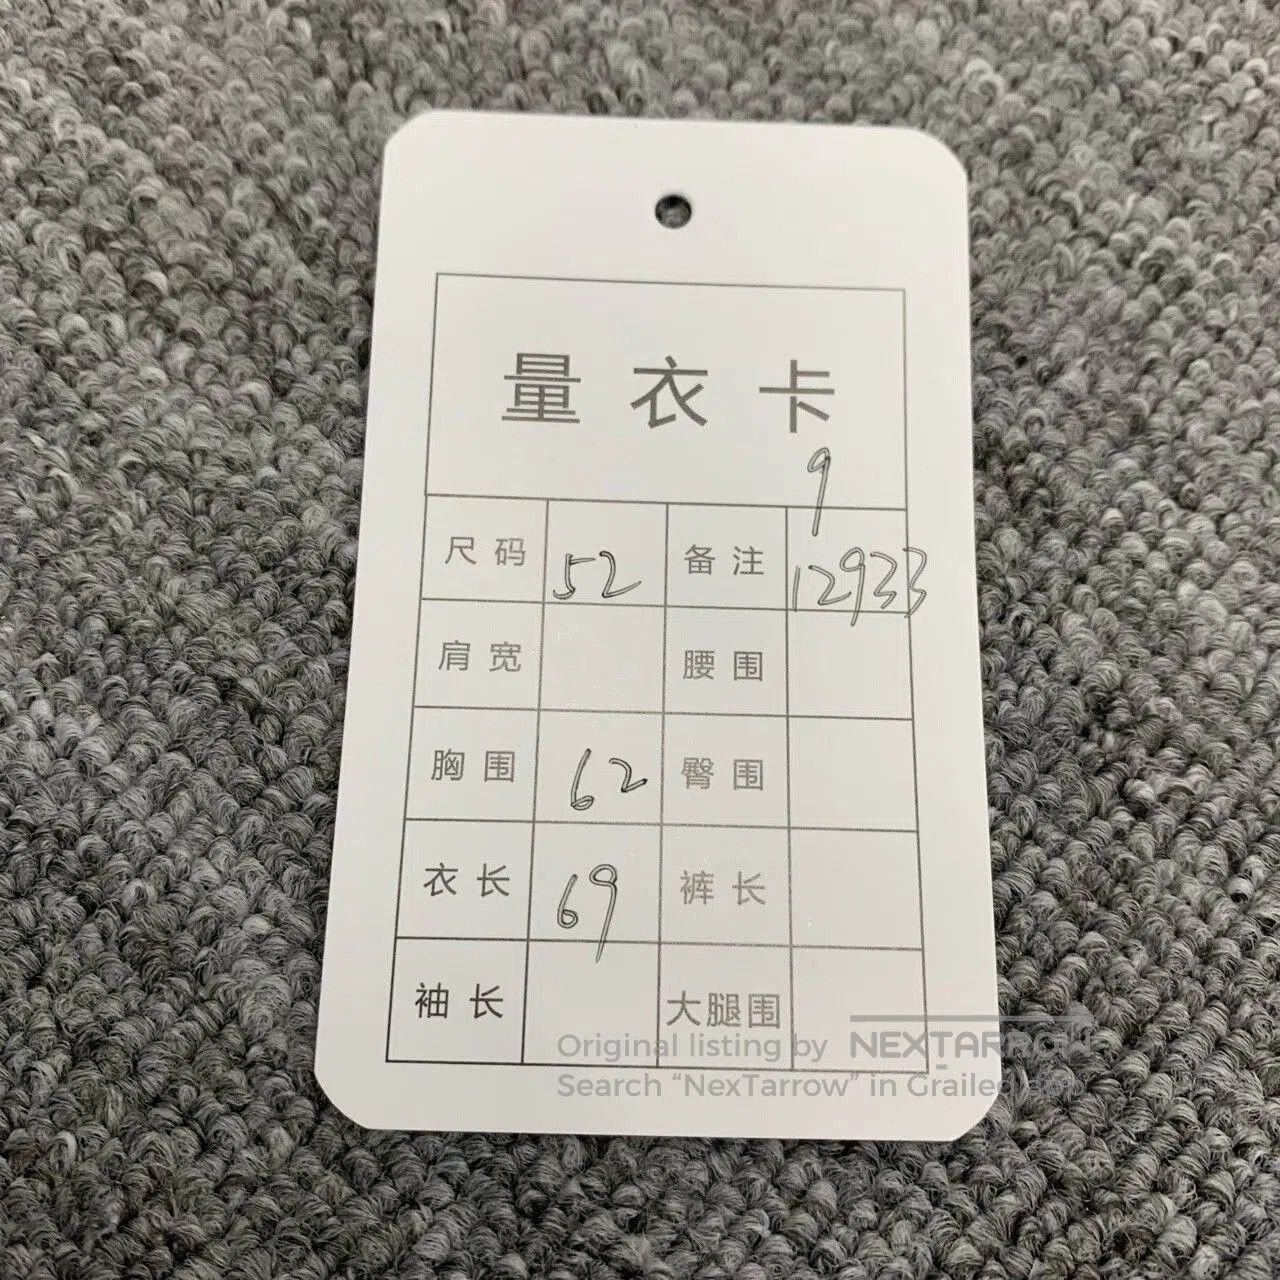 量衣卡
9
尺码 52 备注 12933
肩宽 腰围
胸围 62 臀围
衣长 69 裤长
袖长 大腿围
Original listing by NEXTARROW
Search “NexTarrow” in Grailed